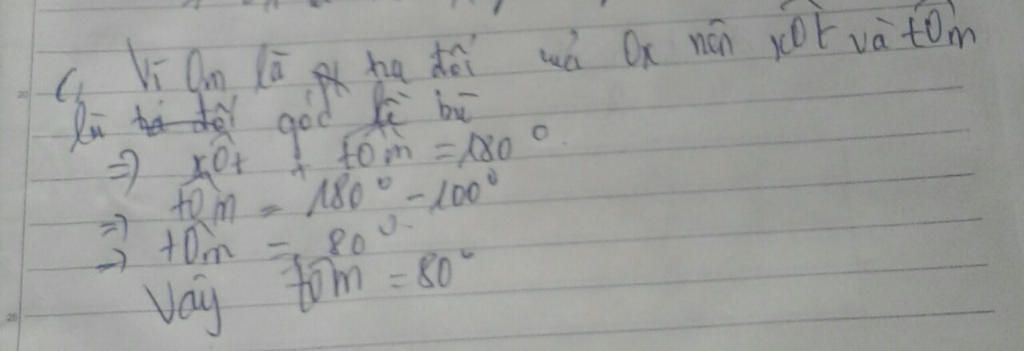 c, Vì Om là tia đối của Ox nên xOt và tOm
là góc kề bù
=) xOt + tOm = 180°.
=) tOm = 180° - 100°
=) tOm = 80°.
Vậy tOm = 80°